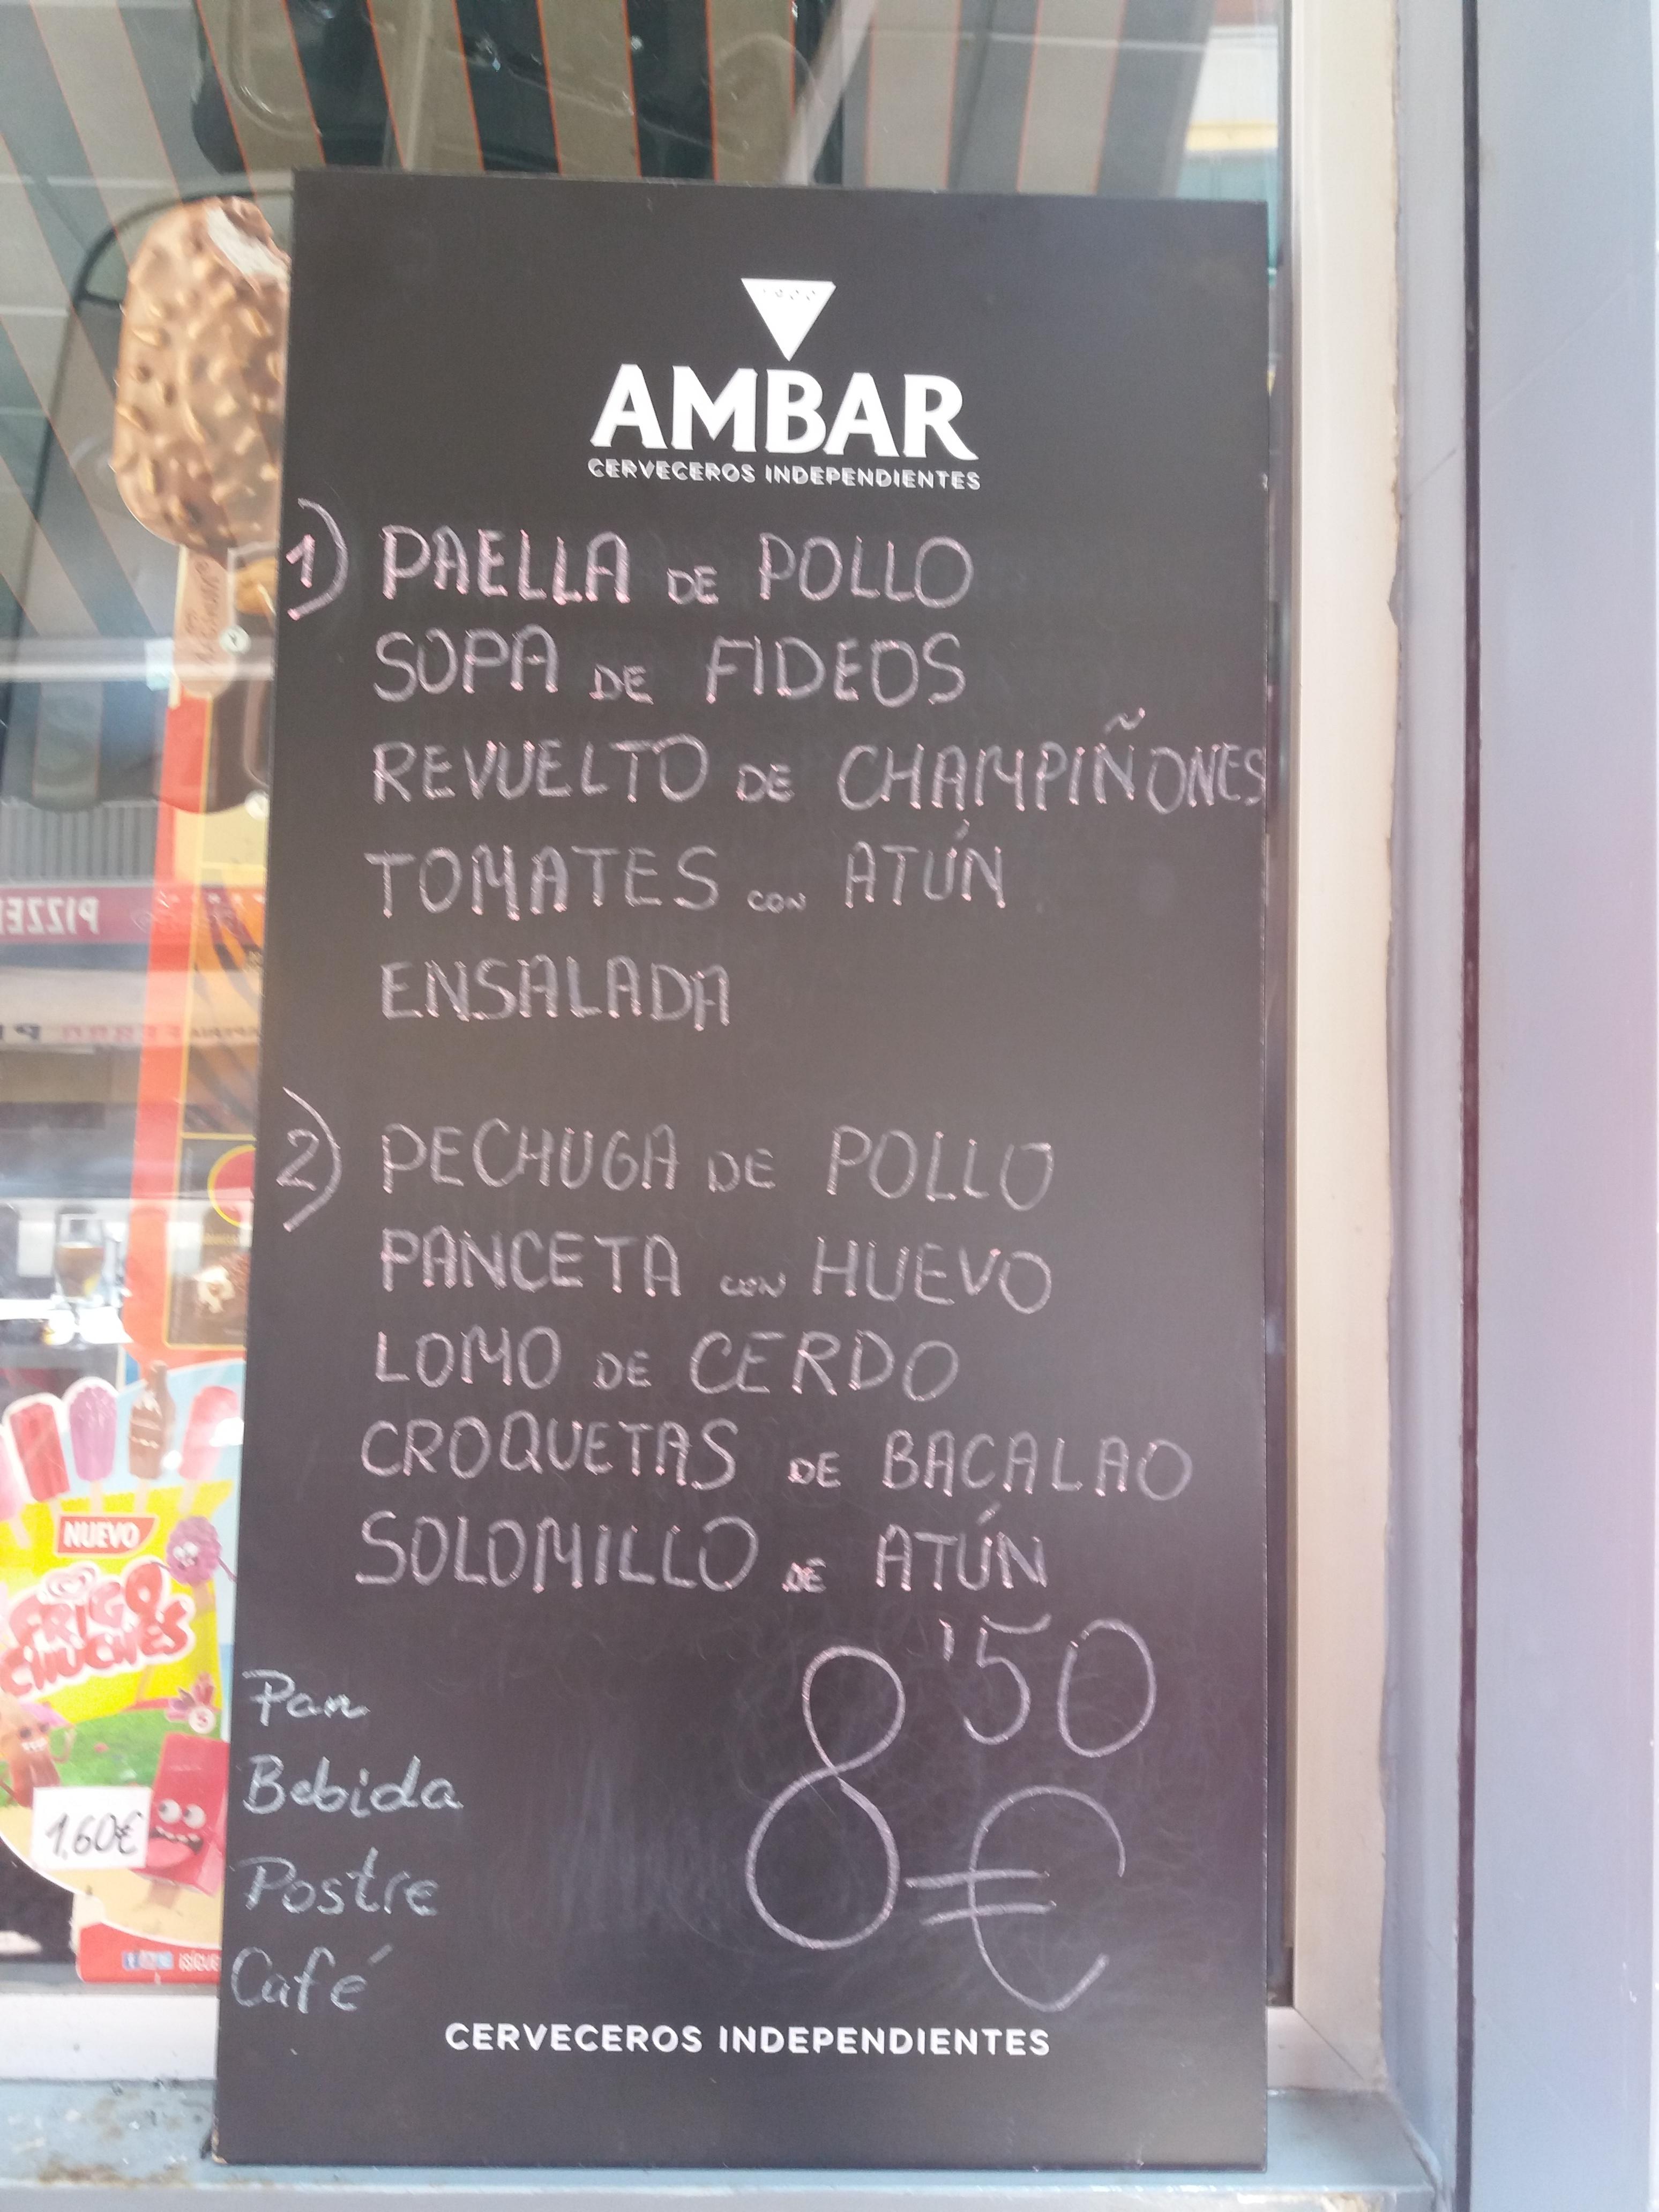 AMBAR
CERVECEROS INDEPENDIENTES
1) PAELLA DE POLLO
SOPA DE FIDEOS
REVUELTO DE CHAMPIÑONES
TOMATES CON ATÚN
ENSALADA
2) PECHUGA DE POLLO
PANCETA CON HUEVO
LOMO DE CERDO
CROQUETAS DE BACALAO
SOLOMILLO DE ATÚN
8'50 €
Pan
Bebida
Postre
Café
CERVECEROS INDEPENDIENTES
PIZZE
NUEVO
FRIGO
CHUCHES
1,60€
¡SÍGUE